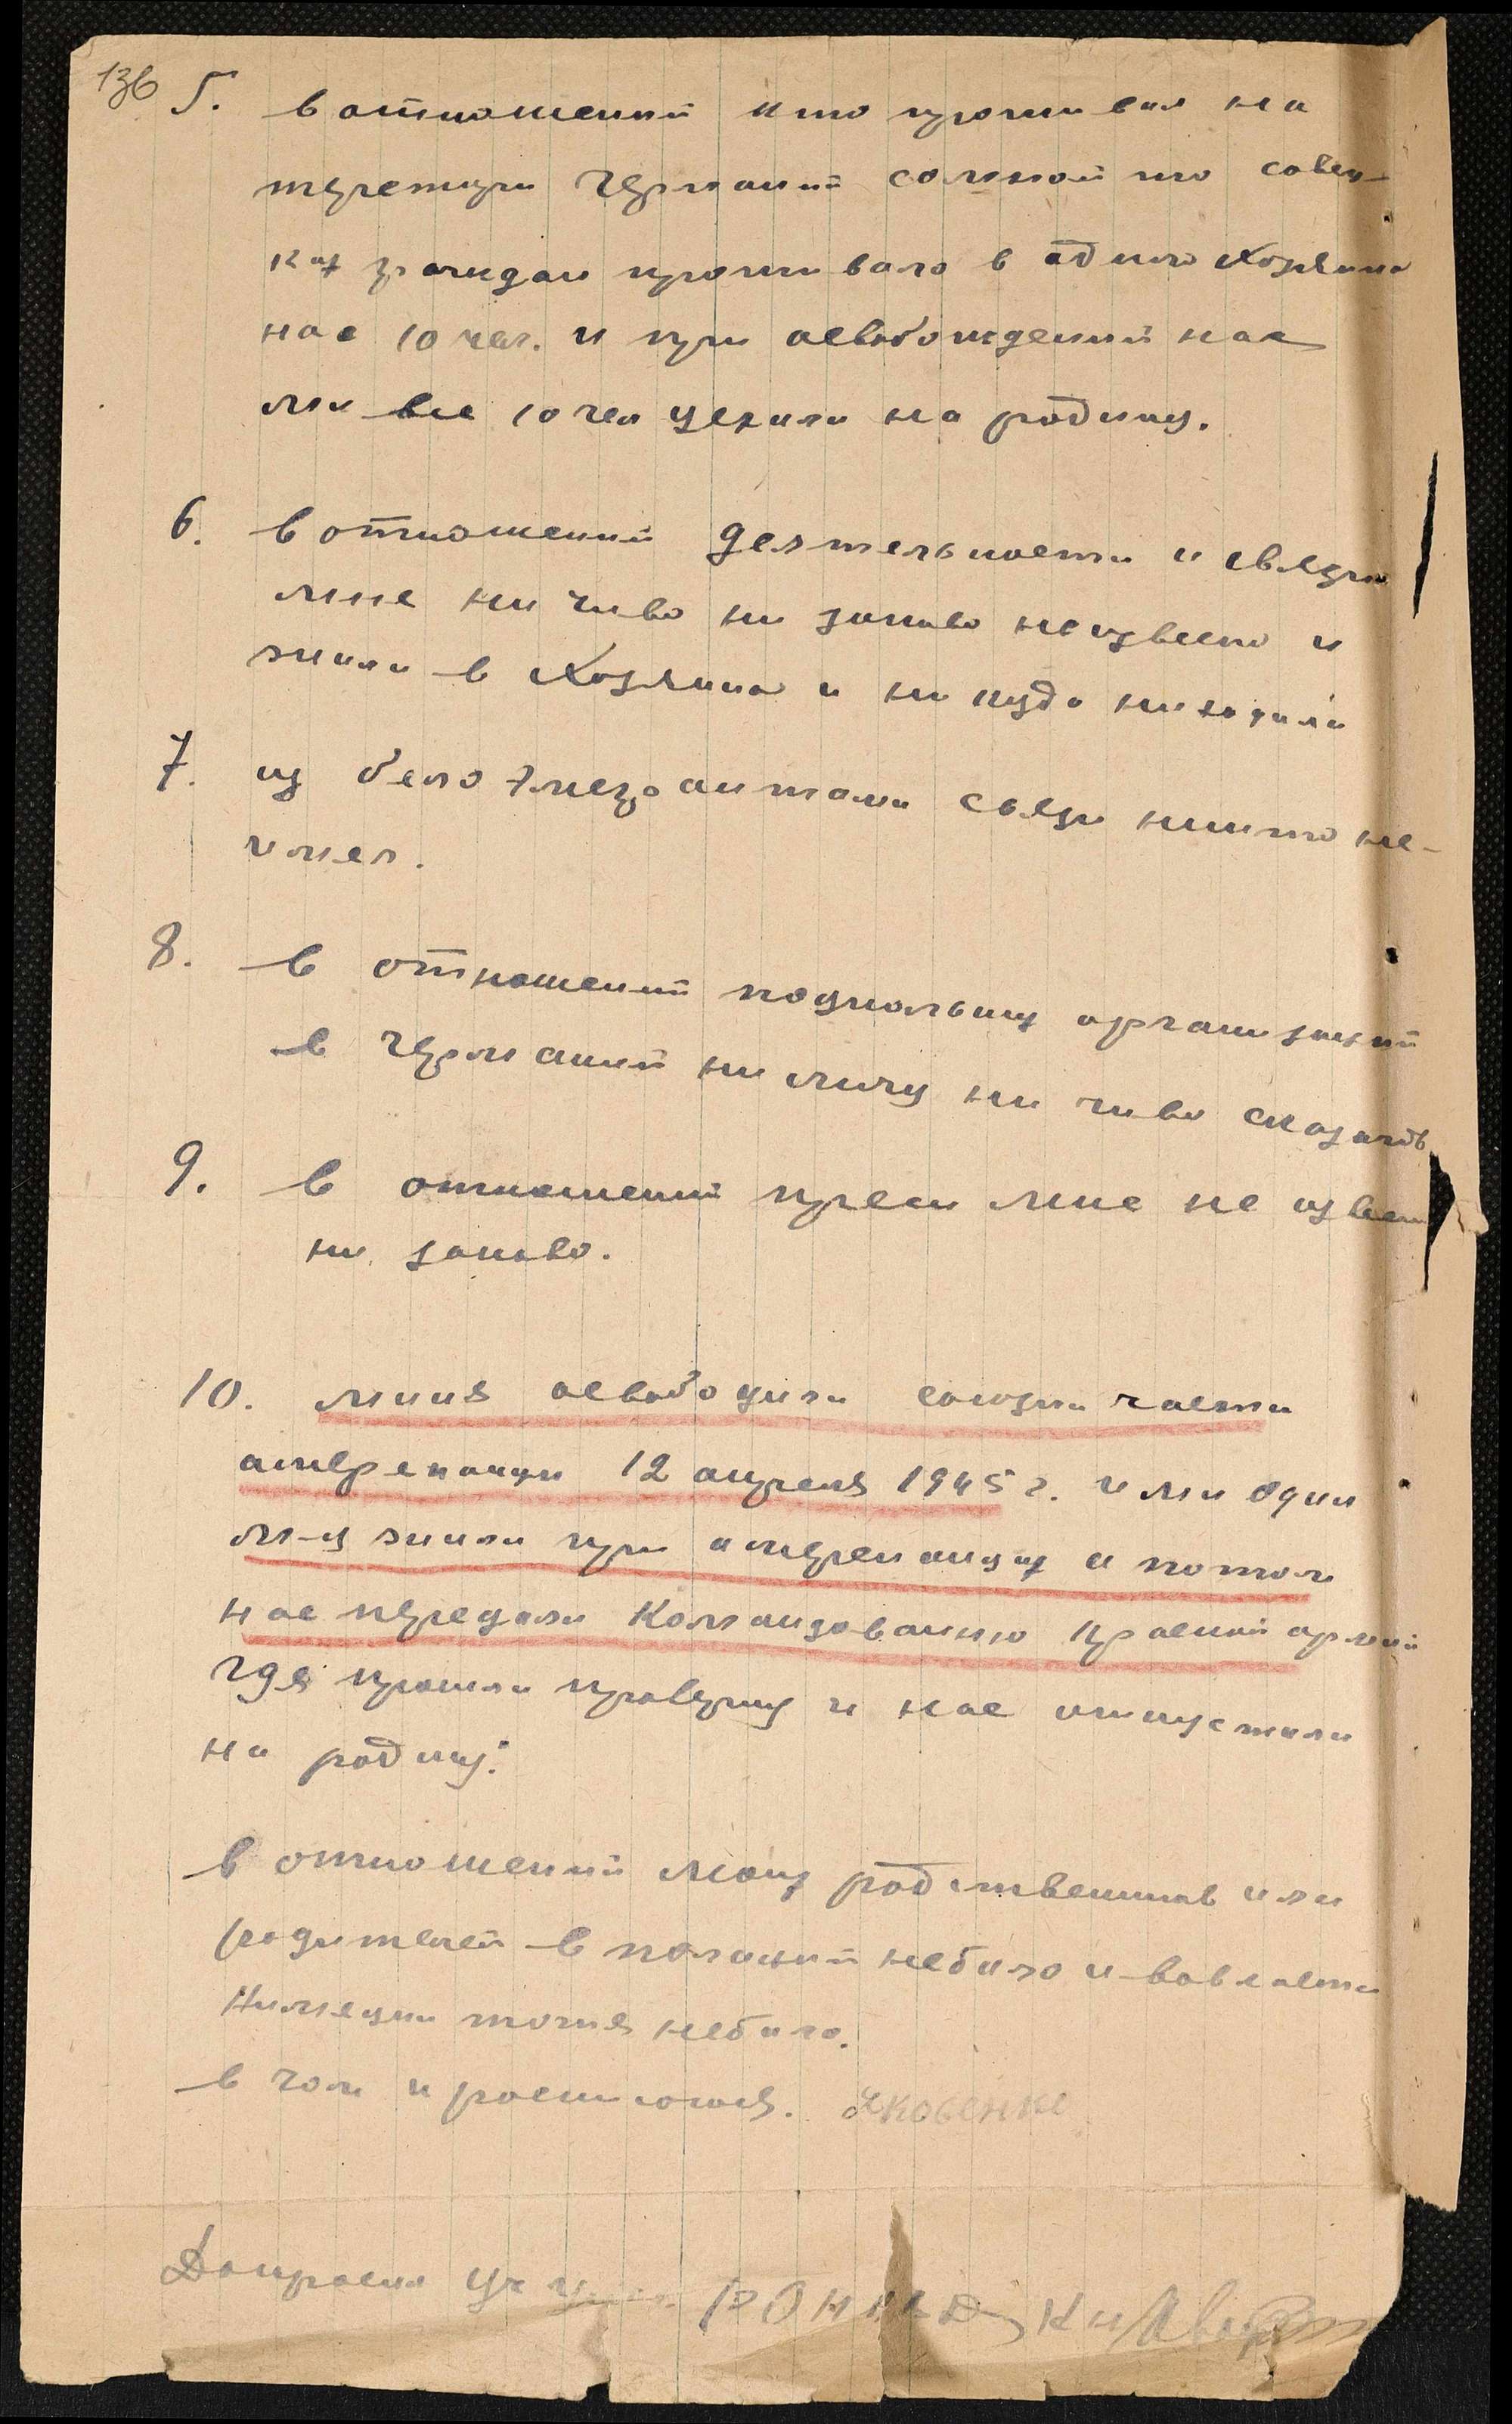 136
5. в отношений кто проживал на
теретори германий самной то совец-
ких граждан проживало в одного Хозяина
нас 10 чел. и при освобождений нас
ми все 10 чел уехали на родину.
6. в отношений деятельности и связи
мне ни чиво ни заково неизвесно и
жили в Хозяина и ни куда ниходили
7. из бело эмегрантами связи никто не-
имел.
8. в отношений подпольних организаций
в германий ни могу ни чиво сказать
9. в отношений преси мне не извес
ни заково.
10. миня освободили союзни части
американци 12 апреля 1945 г. и ми один
м-ц жили при американцах и потом
нас передали Командованию Красной армий
где прошли проверку и нас отпустили
на родину.
в отношений моих родственников или
родителей в полиций небило и вовласти
Нимецки тоже небило.
в чом и росписюся. Яковенко
Допросил Уч